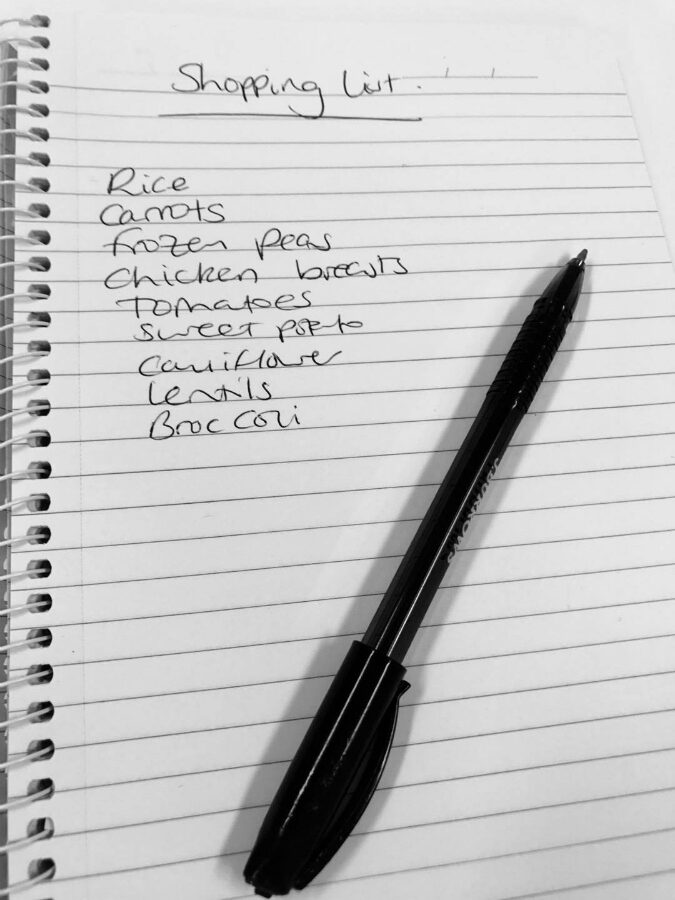 Shopping List.
Rice
Carrots
frozen peas
Chicken breasts
Tomatoes
Sweet potato
Cauliflower
Lentils
Broccoli